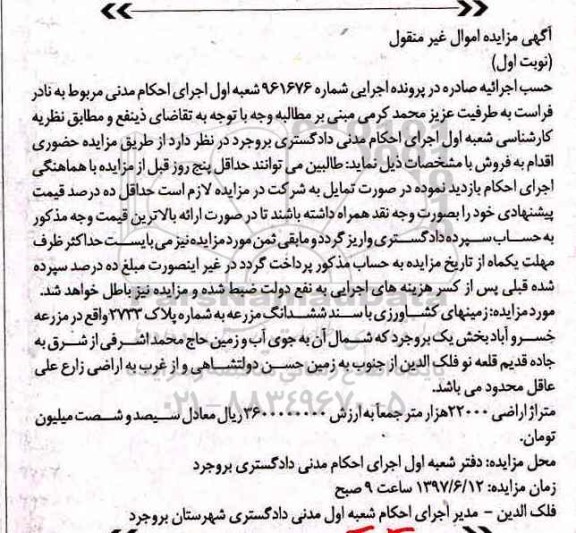 آگهی مزایده اموال غیر منقول
(نوبت اول)
حسب اجرائیه صادره در پرونده اجرایی شماره ۹۶۱۶۷۶ شعبه اول اجرای احکام مدنی مربوط به نادر
فراست به طرفیت عزیز محمد کرمی مبنی بر مطالبه وجه با توجه به تقاضای ذینفع و مطابق نظریه
کارشناسی شعبه اول اجرای احکام مدنی دادگستری بروجرد در نظر دارد از طریق مزایده حضوری
اقدام به فروش با مشخصات ذیل نماید: طالبین می توانند حداقل پنج روز قبل از مزایده با هماهنگی
اجرای احکام بازدید نموده در صورت تمایل به شرکت در مزایده لازم است حداقل ده درصد قیمت
پیشنهادی خود را بصورت وجه نقد همراه داشته باشند تا در صورت ارائه بالاترین قیمت وجه مذکور
به حساب سپرده دادگستری واریز گردد و مابقی ثمن مورد مزایده نیز می بایست حداکثر ظرف
مهلت یکماه از تاریخ مزایده به حساب مذکور پرداخت گردد در غیر اینصورت مبلغ ده درصد سپرده
شده قبلی پس از کسر هزینه های اجرایی به نفع دولت ضبط شده و مزایده نیز باطل خواهد شد.
مورد مزایده: زمینهای کشاورزی با سند ششدانگ مزرعه به شماره پلاک ۲۷۳۳ واقع در مزرعه
خسرو آباد بخش یک بروجرد که شمال آن به جوی آب و زمین حاج محمد اشرفی از شرق به
جاده قدیم قلعه نو فلک الدین از جنوب به زمین حسن دولتشاهی و از غرب به اراضی زارع علی
عاقل محدود می باشد.
متراژ اراضی ۲۲۰۰۰ هزار متر جمعا به ارزش ۳۶۰۰۰۰۰۰۰۰ ریال معادل سیصد و شصت میلیون
تومان.
محل مزایده: دفتر شعبه اول اجرای احکام مدنی دادگستری بروجرد
زمان مزایده: ۱۳۹۷/۶/۱۲ ساعت ۹ صبح
فلک الدین - مدیر اجرای احکام شعبه اول مدنی دادگستری شهرستان بروجرد
ParsNamadData
۰۲۱-۸۸۳۴۹۶۷۰-۵